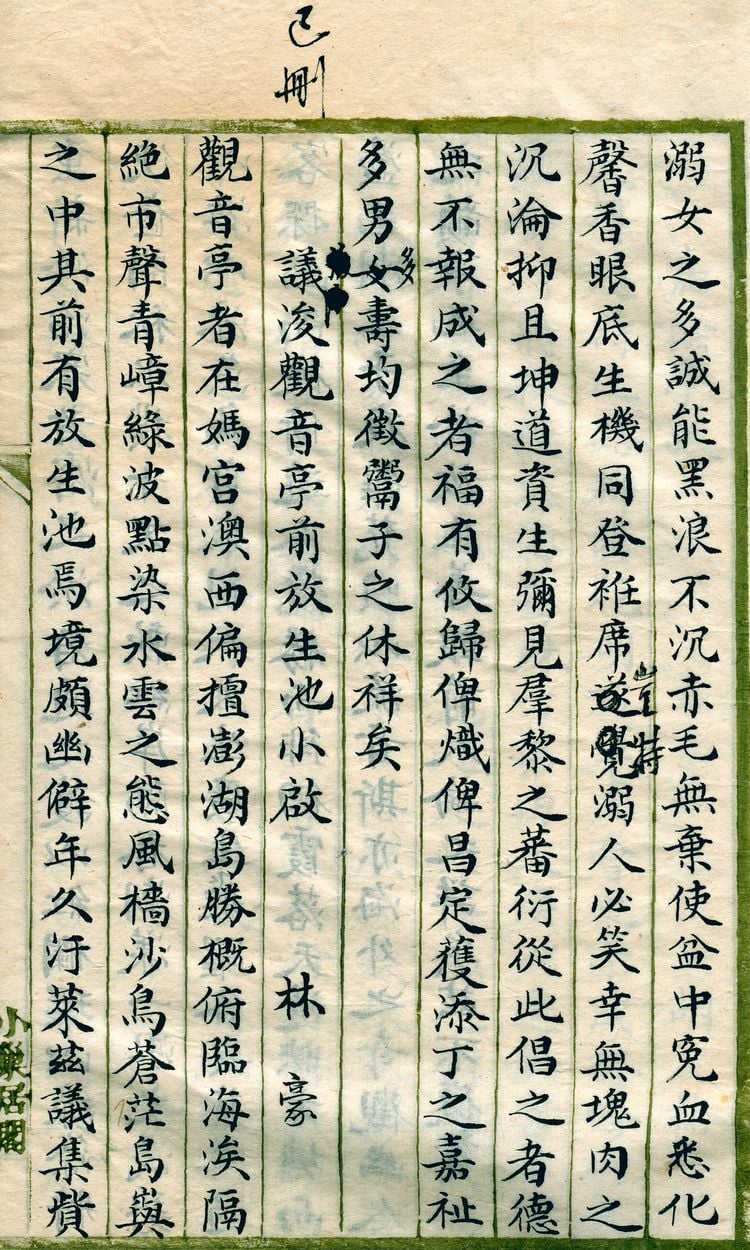 已刪
溺女之多誠能黑浪不沉赤毛無棄使盆中寃血悉化
馨香眼底生機同登袵席遂覺溺人必笑幸無塊肉之
豈特
沉淪抑且坤道資生彌見羣黎之蕃衍從此倡之者德
無不報成之者福有攸歸俾熾俾昌定獲添丁之嘉祉
多男女壽均徵鬻子之休祥矣
多
議浚觀音亭前放生池小啟 林 豪
觀音亭者在媽宮澳西偏擅澎湖島勝概俯臨海涘隔
絕市聲青嶂綠波點染水雲之態風檣沙鳥蒼茫島嶼
之中其前有放生池焉境頗幽僻年久汙萊茲議集貲